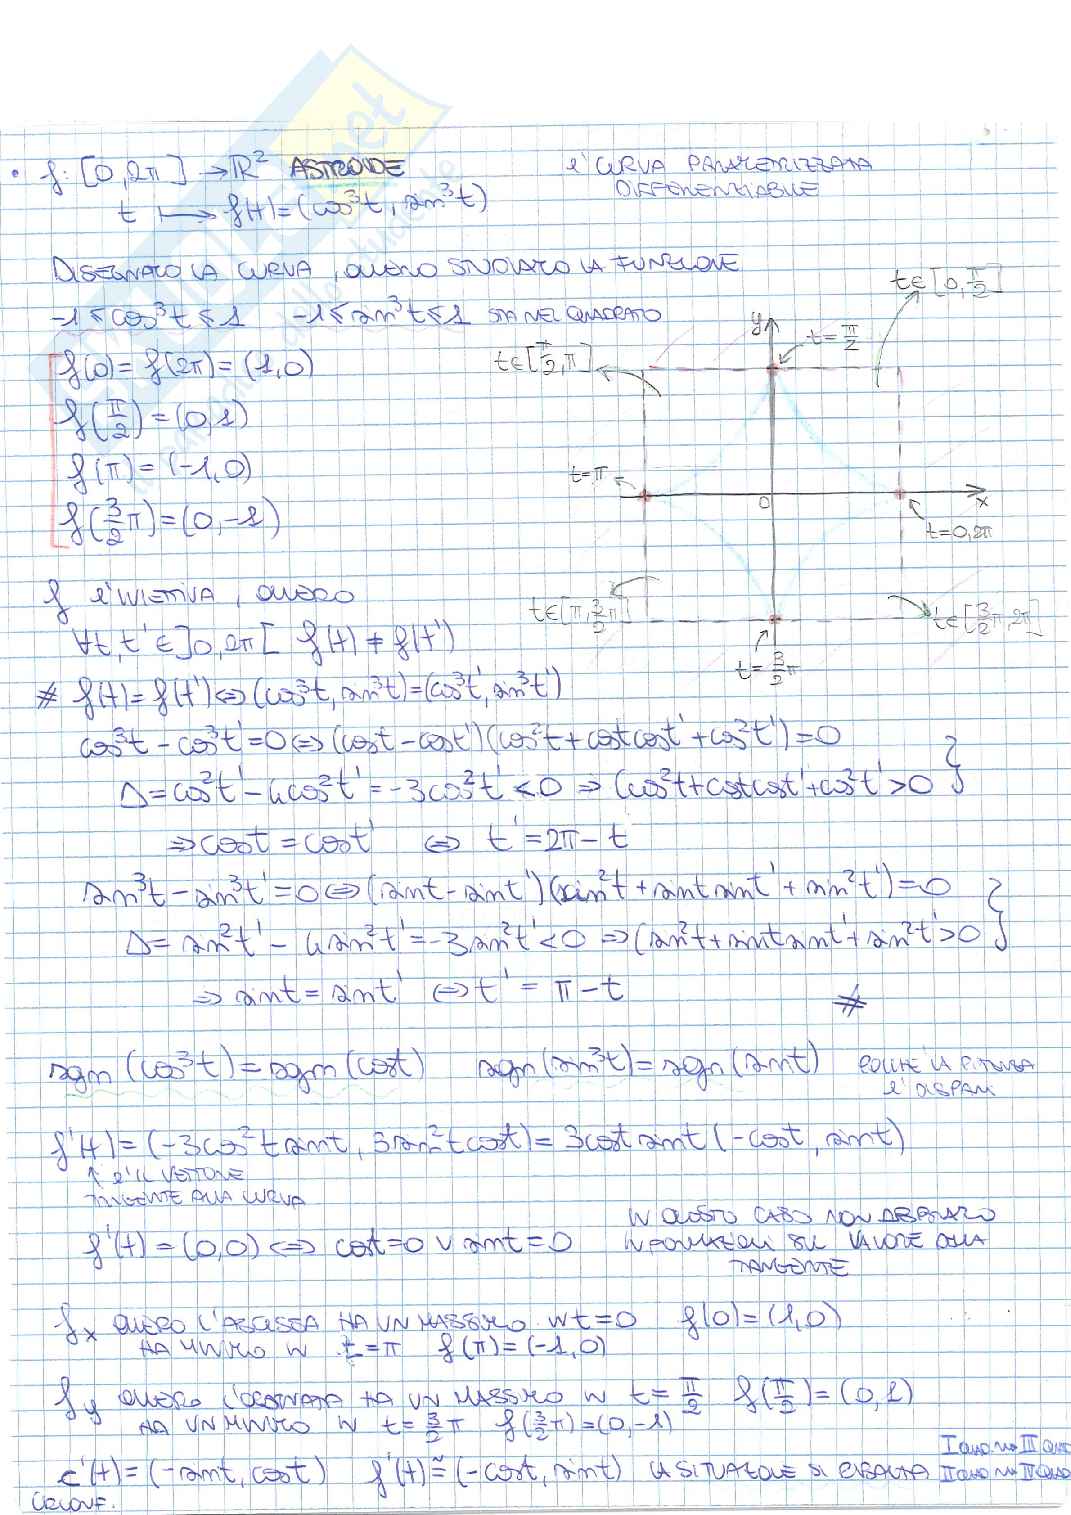 • f: [0, 2π] → ℝ² ASTROIDE
è CURVA PARAMETRIZZATA
DIFFERENZIABILE
t ↦ f(t) = (cos³t, sin³t)
DISEGNAMO LA CURVA, OVVERO STUDIAMO LA FUNZIONE
-1 ≤ cos³t ≤ 1 -1 ≤ sin³t ≤ 1 STA NEL QUADRATO
f(0) = f(2π) = (1,0)
f(π/2) = (0,1)
f(π) = (-1,0)
f(3/2 π) = (0,-1)
t∈[0, π/2]
y
t = π/2
t∈[π/2, π]
t = π
0
x
t = 0, 2π
t∈[π, 3/2 π]
t∈[3/2 π, 2π]
t = 3/2 π
f è INIETTIVA, OVVERO
∀t, t' ∈ ]0, 2π[ f(t) ≠ f(t')
# f(t) = f(t') ⇔ (cos³t, sin³t) = (cos³t', sin³t')
cos³t - cos³t' = 0 ⇔ (cost - cost')(cos²t + cost cost' + cos²t') = 0
Δ = cos²t' - 4cos²t' = -3cos²t' < 0 ⇒ (cos²t + cost cost' + cos²t' > 0 }
⇒ cost = cost' ⇔ t' = 2π - t
sin³t - sin³t' = 0 ⇔ (sint - sint')(sin²t + sint sint' + sin²t') = 0
Δ = sin²t' - 4sin²t' = -3sin²t' < 0 ⇒ (sin²t + sint sint' + sin²t' > 0 }
⇒ sint = sint' ⇔ t' = π - t #
sgn(cos³t) = sgn(cost) sgn(sin³t) = sgn(sint) POICHÉ LA POTENZA
È DISPARI
f'(t) = (-3cos²t sint, 3sin²t cost) = 3cost sint (-cost, sint)
↑ è IL VETTORE
TANGENTE ALLA CURVA
f'(t) = (0,0) ⇔ cost = 0 ∨ sint = 0
IN QUESTO CASO NON ABBIAMO
INFORMAZIONI SUL VALORE DELLA
TANGENTE
fx OVVERO L'ASCISSA HA UN MASSIMO IN t = 0 f(0) = (1,0)
HA MINIMO IN t = π f(π) = (-1,0)
fy OVVERO L'ORDINATA HA UN MASSIMO IN t = π/2 f(π/2) = (0,1)
HA UN MINIMO IN t = 3/2 π f(3/2 π) = (0,-1)
c'(t) = (-sint, cost) f'(t) ≅ (-cost, sint) LA SITUAZIONE SI
I QUAD III QUAD
II QUAD IV QUAD